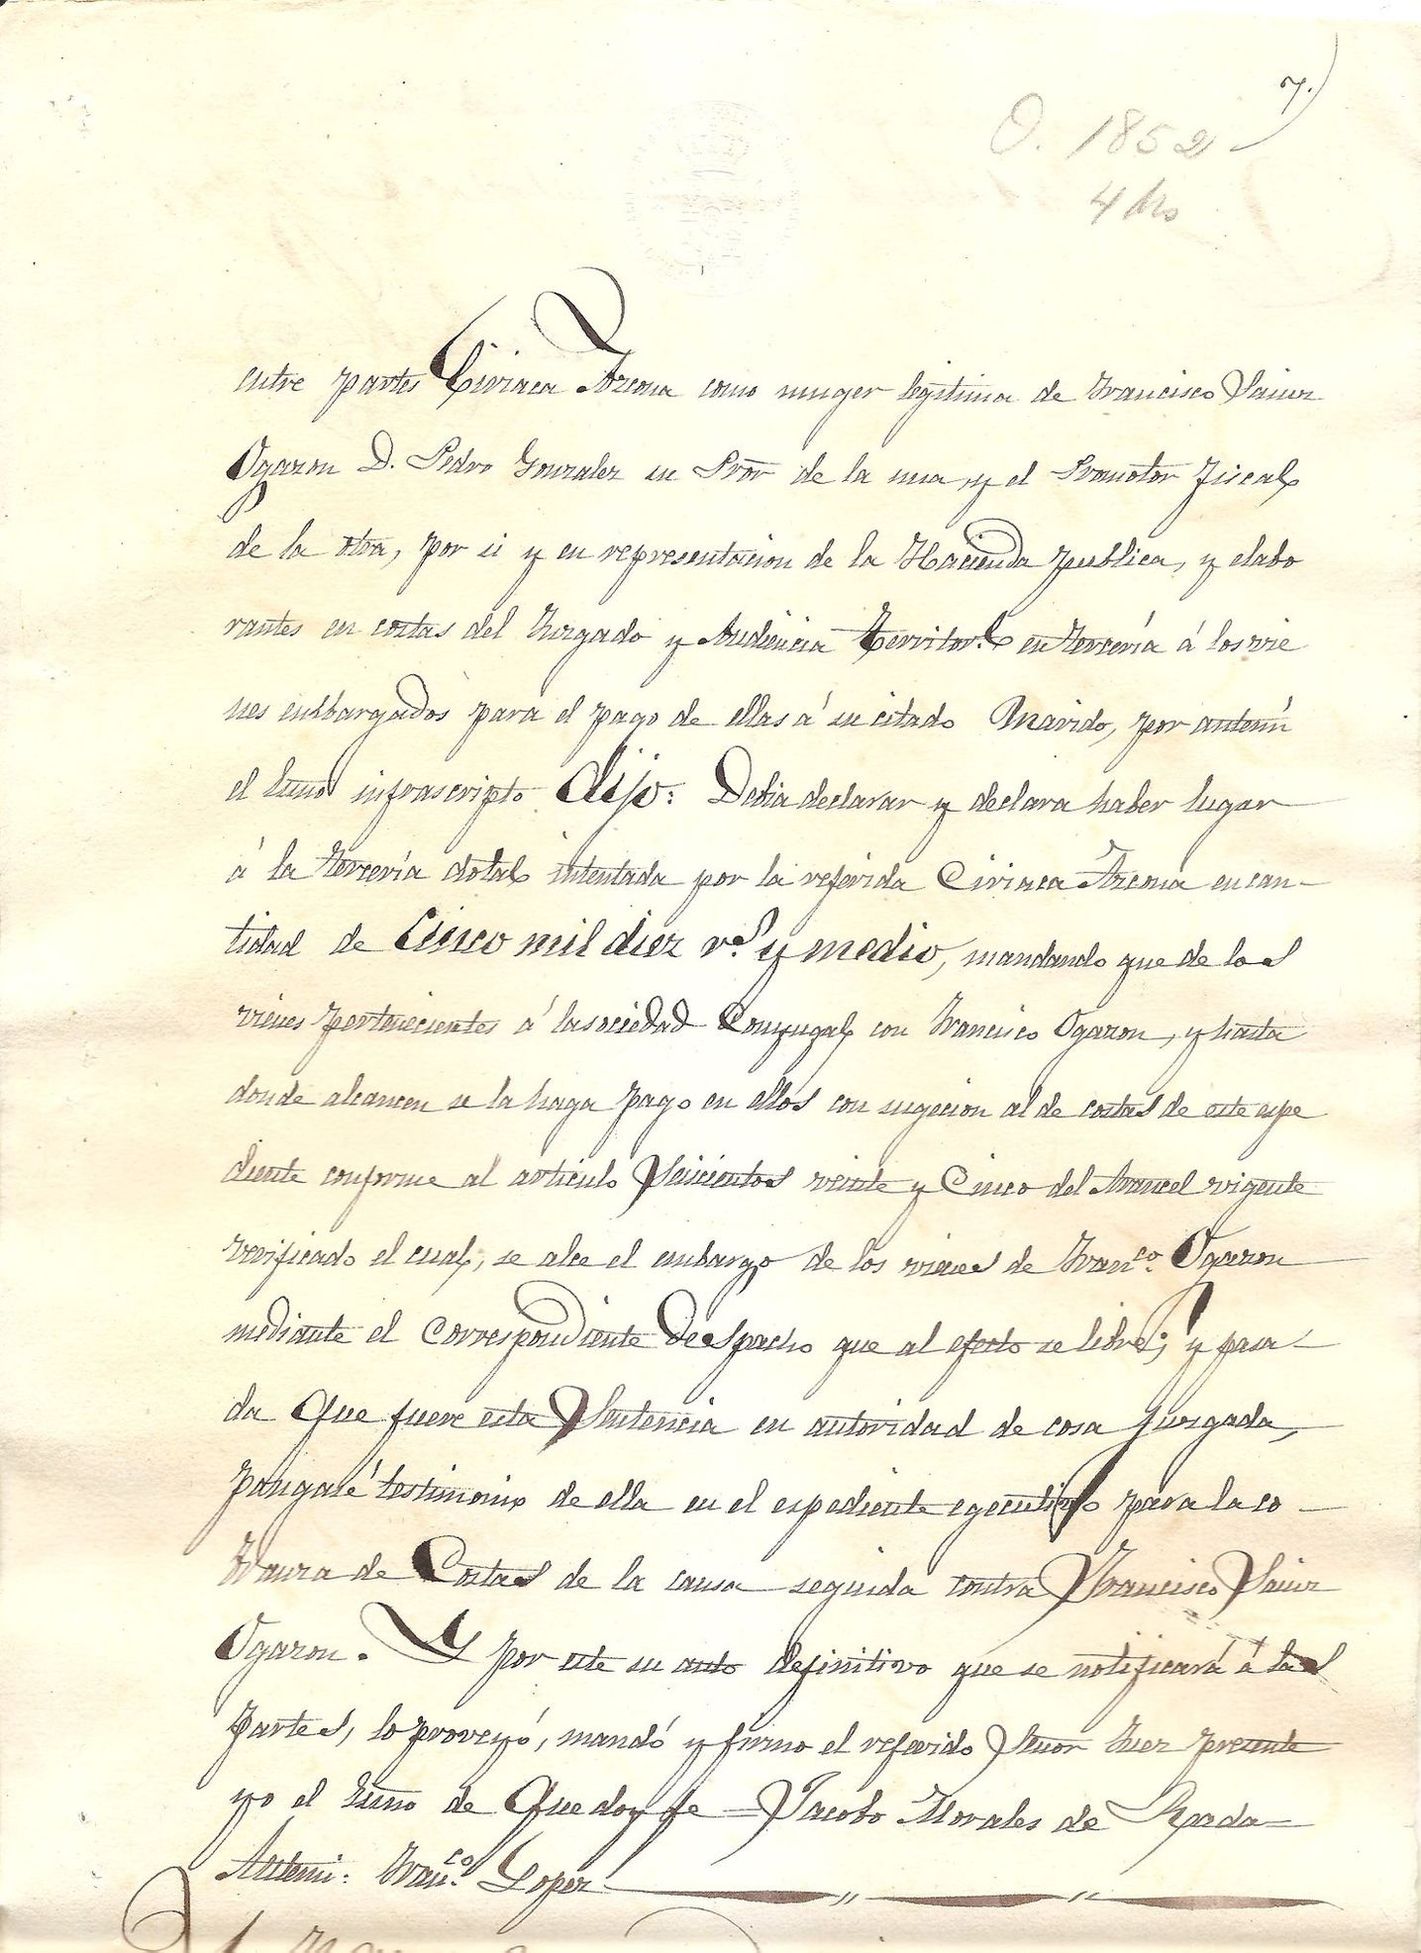 7.)
O. 1852
4 Mrs
entre partes Ciriaca Azcona como muger legitima de Francisco Sainz
Ogazon D. Pedro Gonzalez su Pror de la una y el Promotor Fiscal
de la otra, por si y en representacion de la Hacienda publica, y elabo
rantes en costas del Juzgado y Audiencia Territor.l en tercería á los vie
nes embargados para el pago de ellas á su citado Marido, por antemi
el Essno infrascripto dijo: Debia declarar y declara haber lugar
á la tercería dotal intentada por la referida Ciriaca Azcona en can-
tidad de Cinco mil diez r.s y medio, mandando que de los
vienes pertenecientes á la sociedad Conyugal con Francisco Ogazon, y hasta
donde alcancen se la haga pago en ellos con sugecion al de costas de este espe
diente conforme al articulo Seiscientos veinte y Cinco del Arancel vigente
verificado el cual, se alce el embargo de los vienes de Fran.co Ogazon
mediante el correspondiente Despacho que al efecto se libre; y pasa-
da que fuere esta Sentencia en autoridad de cosa Juzgada,
pongasé testimonio de ella en el espediente egecutivo para la co-
branza de Costas de la causa seguida contra Francisco Sainz
Ogazon. Y por este su auto definitivo que se notificará á las
Partes, lo proveyó, mandó y firmo el referido Señor Juez presente
yo el Essno de que doy fe = Jacobo Morales de Rada=
Antemi: Fran.co Lopez